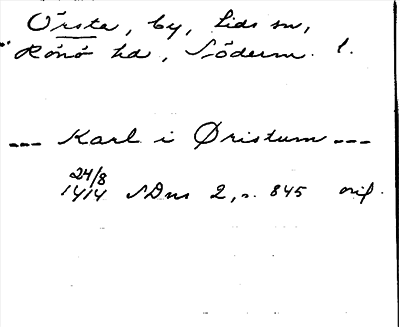 Örsta, by, Lids sn,
Rönö hd, Söderm. l.
--- Karl i Øristum ---
24/8
1414 SDns 2, s. 845 orig.